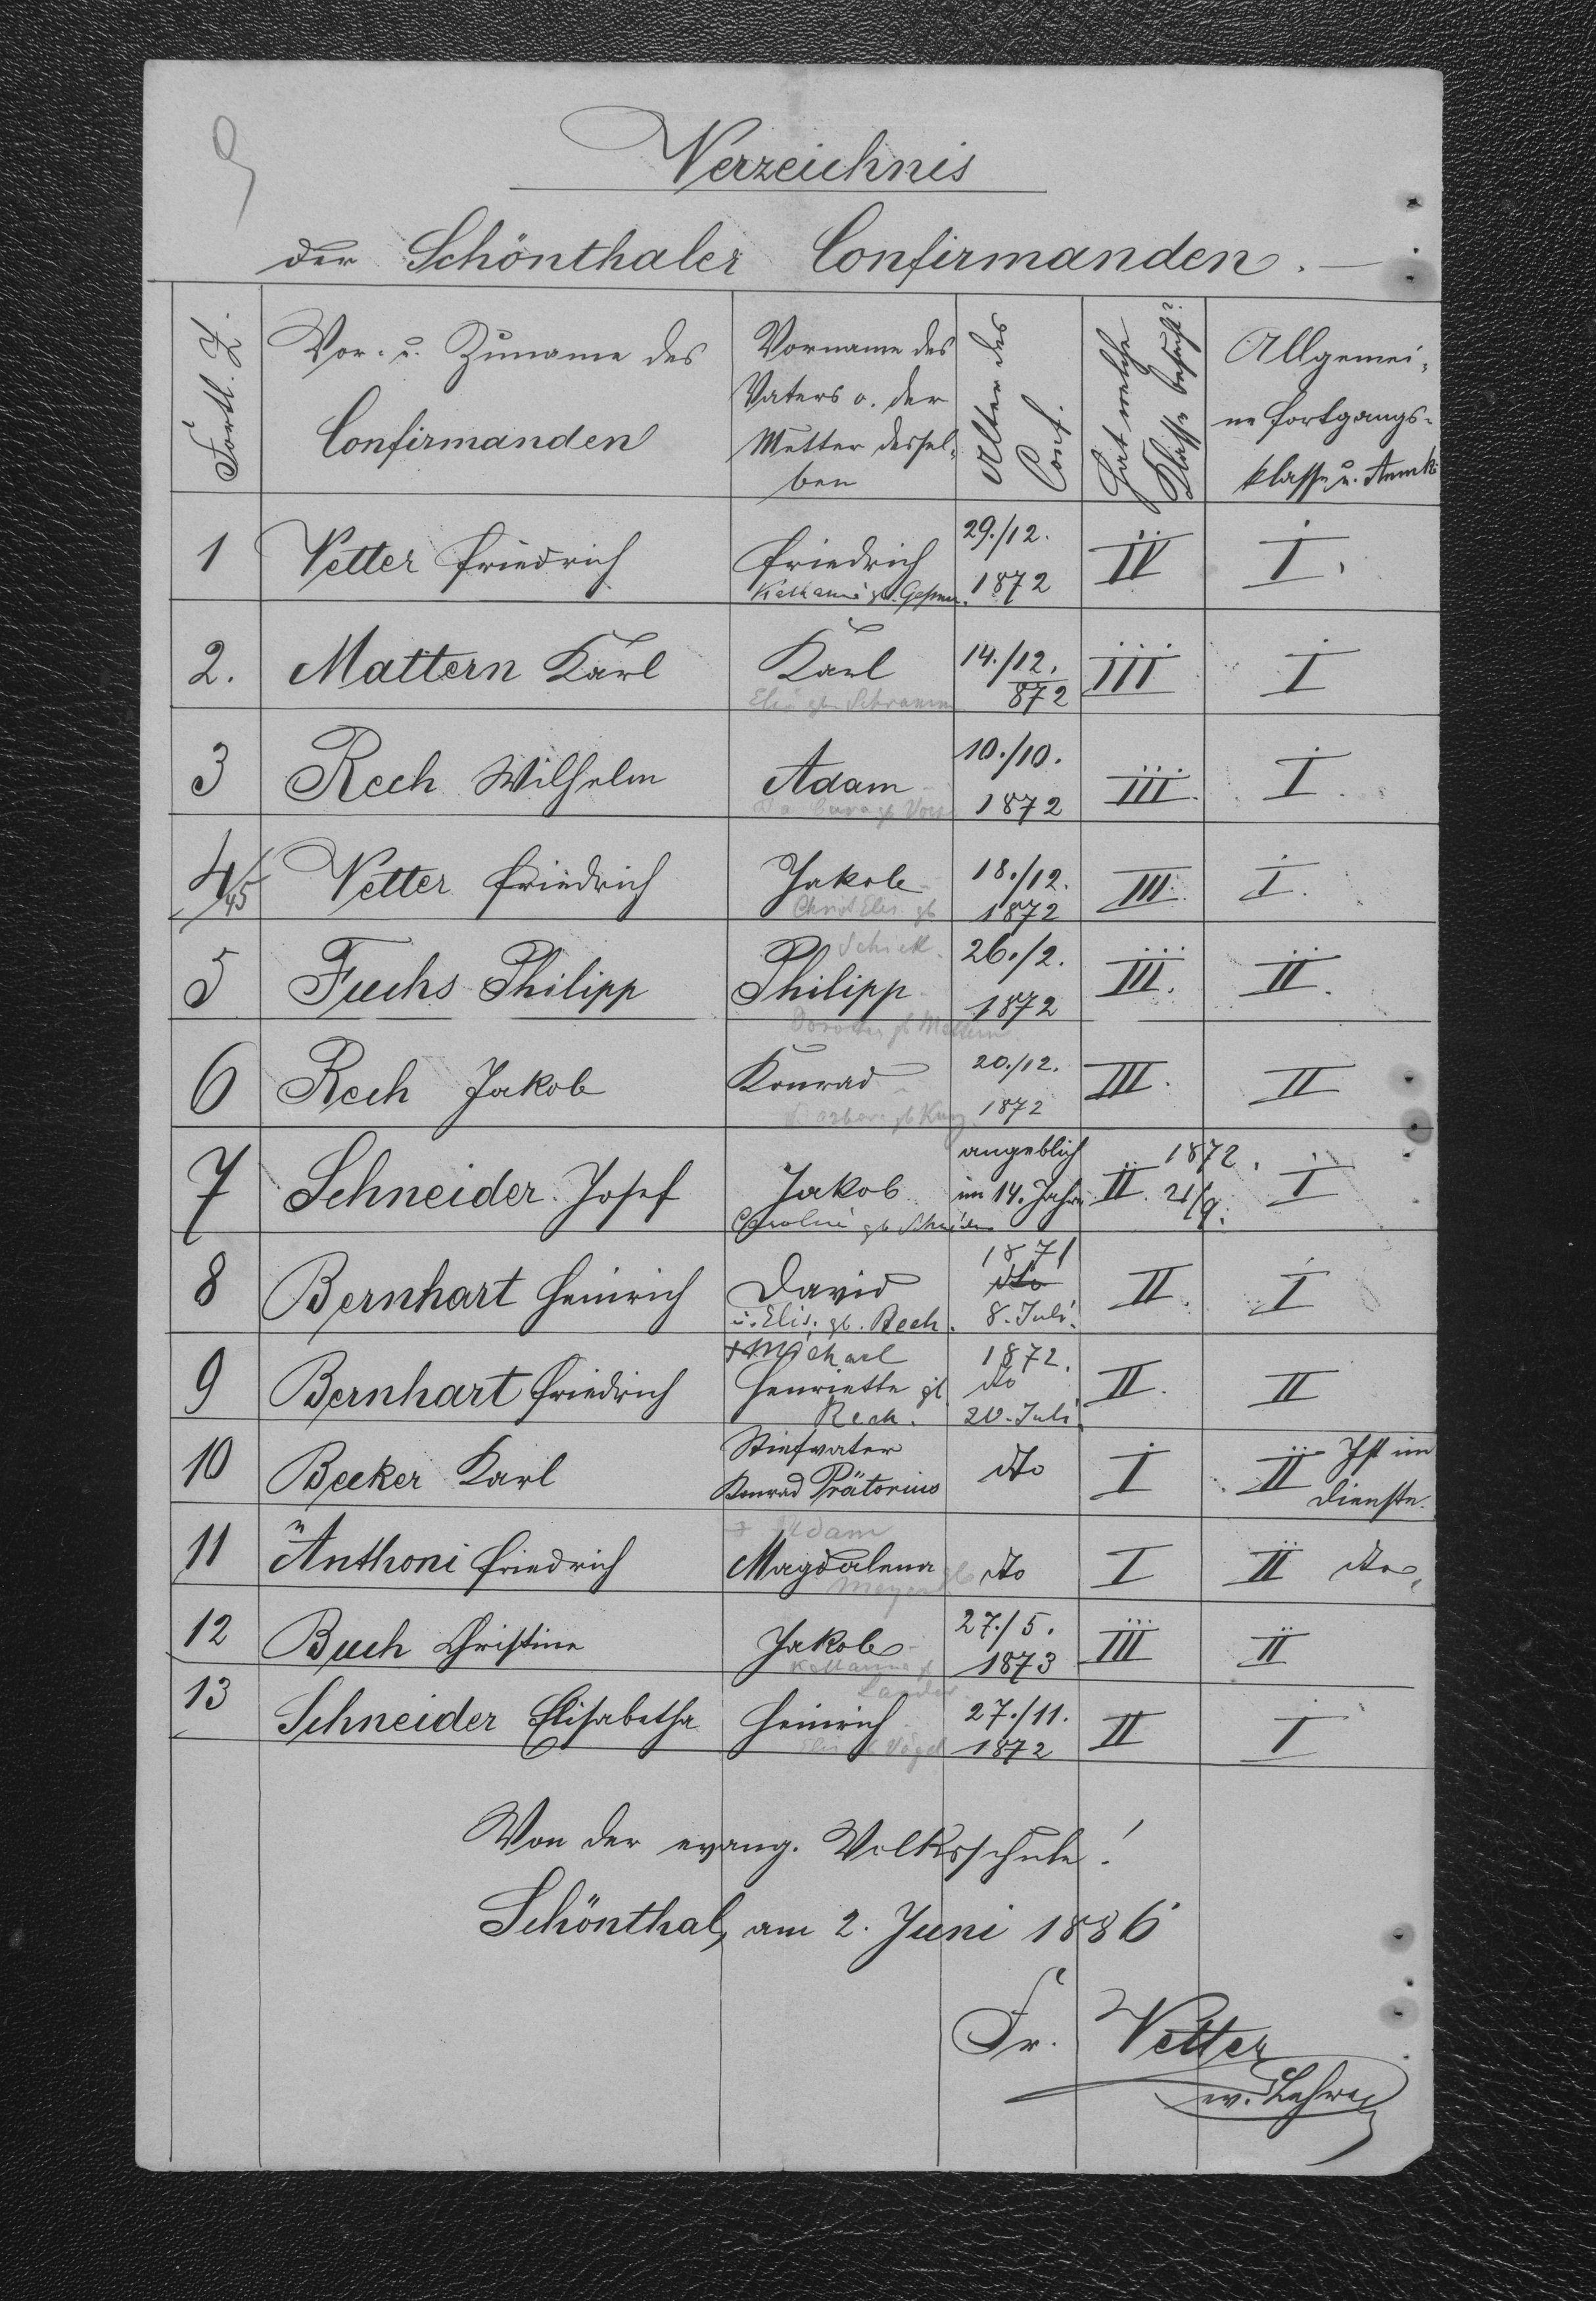 9
Verzeichnis
der Schönthaler Confirmanden.
Fortl. Z.
Vor- u. Zuname des
Confirmanden
Vorname des
Vaters o. der
Mutter dessel-
ben
Alter des
Conf.
Hat welche
Klasse besucht?
Allgemei-
ne Fortgangs-
klasse u. Anmk.
1 Vetter Friedrich Friedrich 29./12. 1872 IV I.
Katharina gb.
2. Mattern Karl Karl 14./12. 872 III I
Elis gb Schramm
3 Rech Wilhelm Adam 10./10. 1872 III. I.
4 Vetter Friedrich Jakob 18./12. 1872 III. I.
45 Christ Elis. gb
Schick
5 Fuchs Philipp Philipp 26./2. 1872 III. II.
Dorothea gb Mattern
6 Rech Jakob Konrad 20./12. 1872 III. II
Barbara gb Kunz
7 Schneider Josef Jakob angeblich im 14. Jahre II. 1872. 21/9. I
Carolina gb Schneider
8 Bernhart Heinrich David 1871 dto II. I
u. Elis. gb. Rech. 8. Juli.
9 Bernhart Friedrich + Michael 1872. II. II
Henriette gb dto
Rech. 20. Juli
10 Becker Karl Stiefvater dto I II Ist im
Konrad Prätorius Dienste.
11 Anthoni Friedrich + Adam
Magdalena gb dto I II dto
Meyer
12 Buch Christine Jakob 27./5. 1873 III II
Katharina gb
Lander
13 Schneider Elisabetha Heinrich 27./11. 1872 II I
Elis gb Vogel
Von der evang. Volksschule!
Schönthal, am 2. Juni 1886
Fr. Vetter
ev. Lehrer